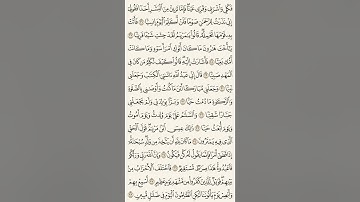 فَكُلِي وَٱشۡرَبِي وَقَرِّي عَيۡنٗاۖ فَإِمَّا تَرَيِنَّ مِنَ ٱلۡبَشَرِ أَحَدٗا فَقُولِيٓ
إِنِّي نَذَرۡتُ لِلرَّحۡمَٰنِ صَوۡمٗا فَلَنۡ أُكَلِّمَ ٱلۡيَوۡمَ إِنسِيّٗا ٢٦ فَأَتَتۡ
بِهِۦ قَوۡمَهَا تَحۡمِلُهُۥۖ قَالُواْ يَٰمَرۡيَمُ لَقَدۡ جِئۡتِ شَيۡـٔٗا فَرِيّٗا ٢٧
يَٰٓأُخۡتَ هَٰرُونَ مَا كَانَ أَبُوكِ ٱمۡرَأَ سَوۡءٖ وَمَا كَانَتۡ
أُمُّكِ بَغِيّٗا ٢٨ فَأَشَارَتۡ إِلَيۡهِۖ قَالُواْ كَيۡفَ نُكَلِّمُ مَن كَانَ فِي
ٱلۡمَهۡدِ صَبِيّٗا ٢٩ قَالَ إِنِّي عَبۡدُ ٱللَّهِ ءَاتَىٰنِيَ ٱلۡكِتَٰبَ وَجَعَلَنِي
نَبِيّٗا ٣٠ وَجَعَلَنِي مُبَارَكًا أَيۡنَ مَا كُنتُ وَأَوۡصَٰنِي بِٱلصَّلَوٰةِ
وَٱلزَّكَوٰةِ مَا دُمۡتُ حَيّٗا ٣١ وَبَرَّۢا بِوَٰلِدَتِي وَلَمۡ يَجۡعَلۡنِي
جَبَّارٗا شَقِيّٗا ٣٢ وَٱلسَّلَٰمُ عَلَيَّ يَوۡمَ وُلِدتُّ وَيَوۡمَ أَمُوتُ
وَيَوۡمَ أُبۡعَثُ حَيّٗا ٣٣ ذَٰلِكَ عِيسَى ٱبۡنُ مَرۡيَمَۖ قَوۡلَ ٱلۡحَقِّ
ٱلَّذِي فِيهِ يَمۡتَرُونَ ٣٤ مَا كَانَ لِلَّهِ أَن يَتَّخِذَ مِن وَلَدٖۖ سُبۡحَٰنَهُۥٓۚ
إِذَا قَضَىٰٓ أَمۡرٗا فَإِنَّمَا يَقُولُ لَهُۥ كُن فَيَكُونُ ٣٥ وَإِنَّ ٱللَّهَ رَبِّي وَرَبُّكُمۡ
فَٱعۡبُدُوهُۚ هَٰذَا صِرَٰطٞ مُّسۡتَقِيمٞ ٣٦ فَٱخۡتَلَفَ ٱلۡأَحۡزَابُ مِنۢ
بَيۡنِهِمۡۖ فَوَيۡلٞ لِّلَّذِينَ كَفَرُواْ مِن مَّشۡهَدِ يَوۡمٍ عَظِيمٍ ٣٧ أَسۡمِعۡ بِهِمۡ
وَأَبۡصِرۡ يَوۡمَ يَأۡتُونَنَا لَٰكِنِ ٱلظَّٰلِمُونَ ٱلۡيَوۡمَ فِي ضَلَٰلٖ مُّبِينٖ ٣٨